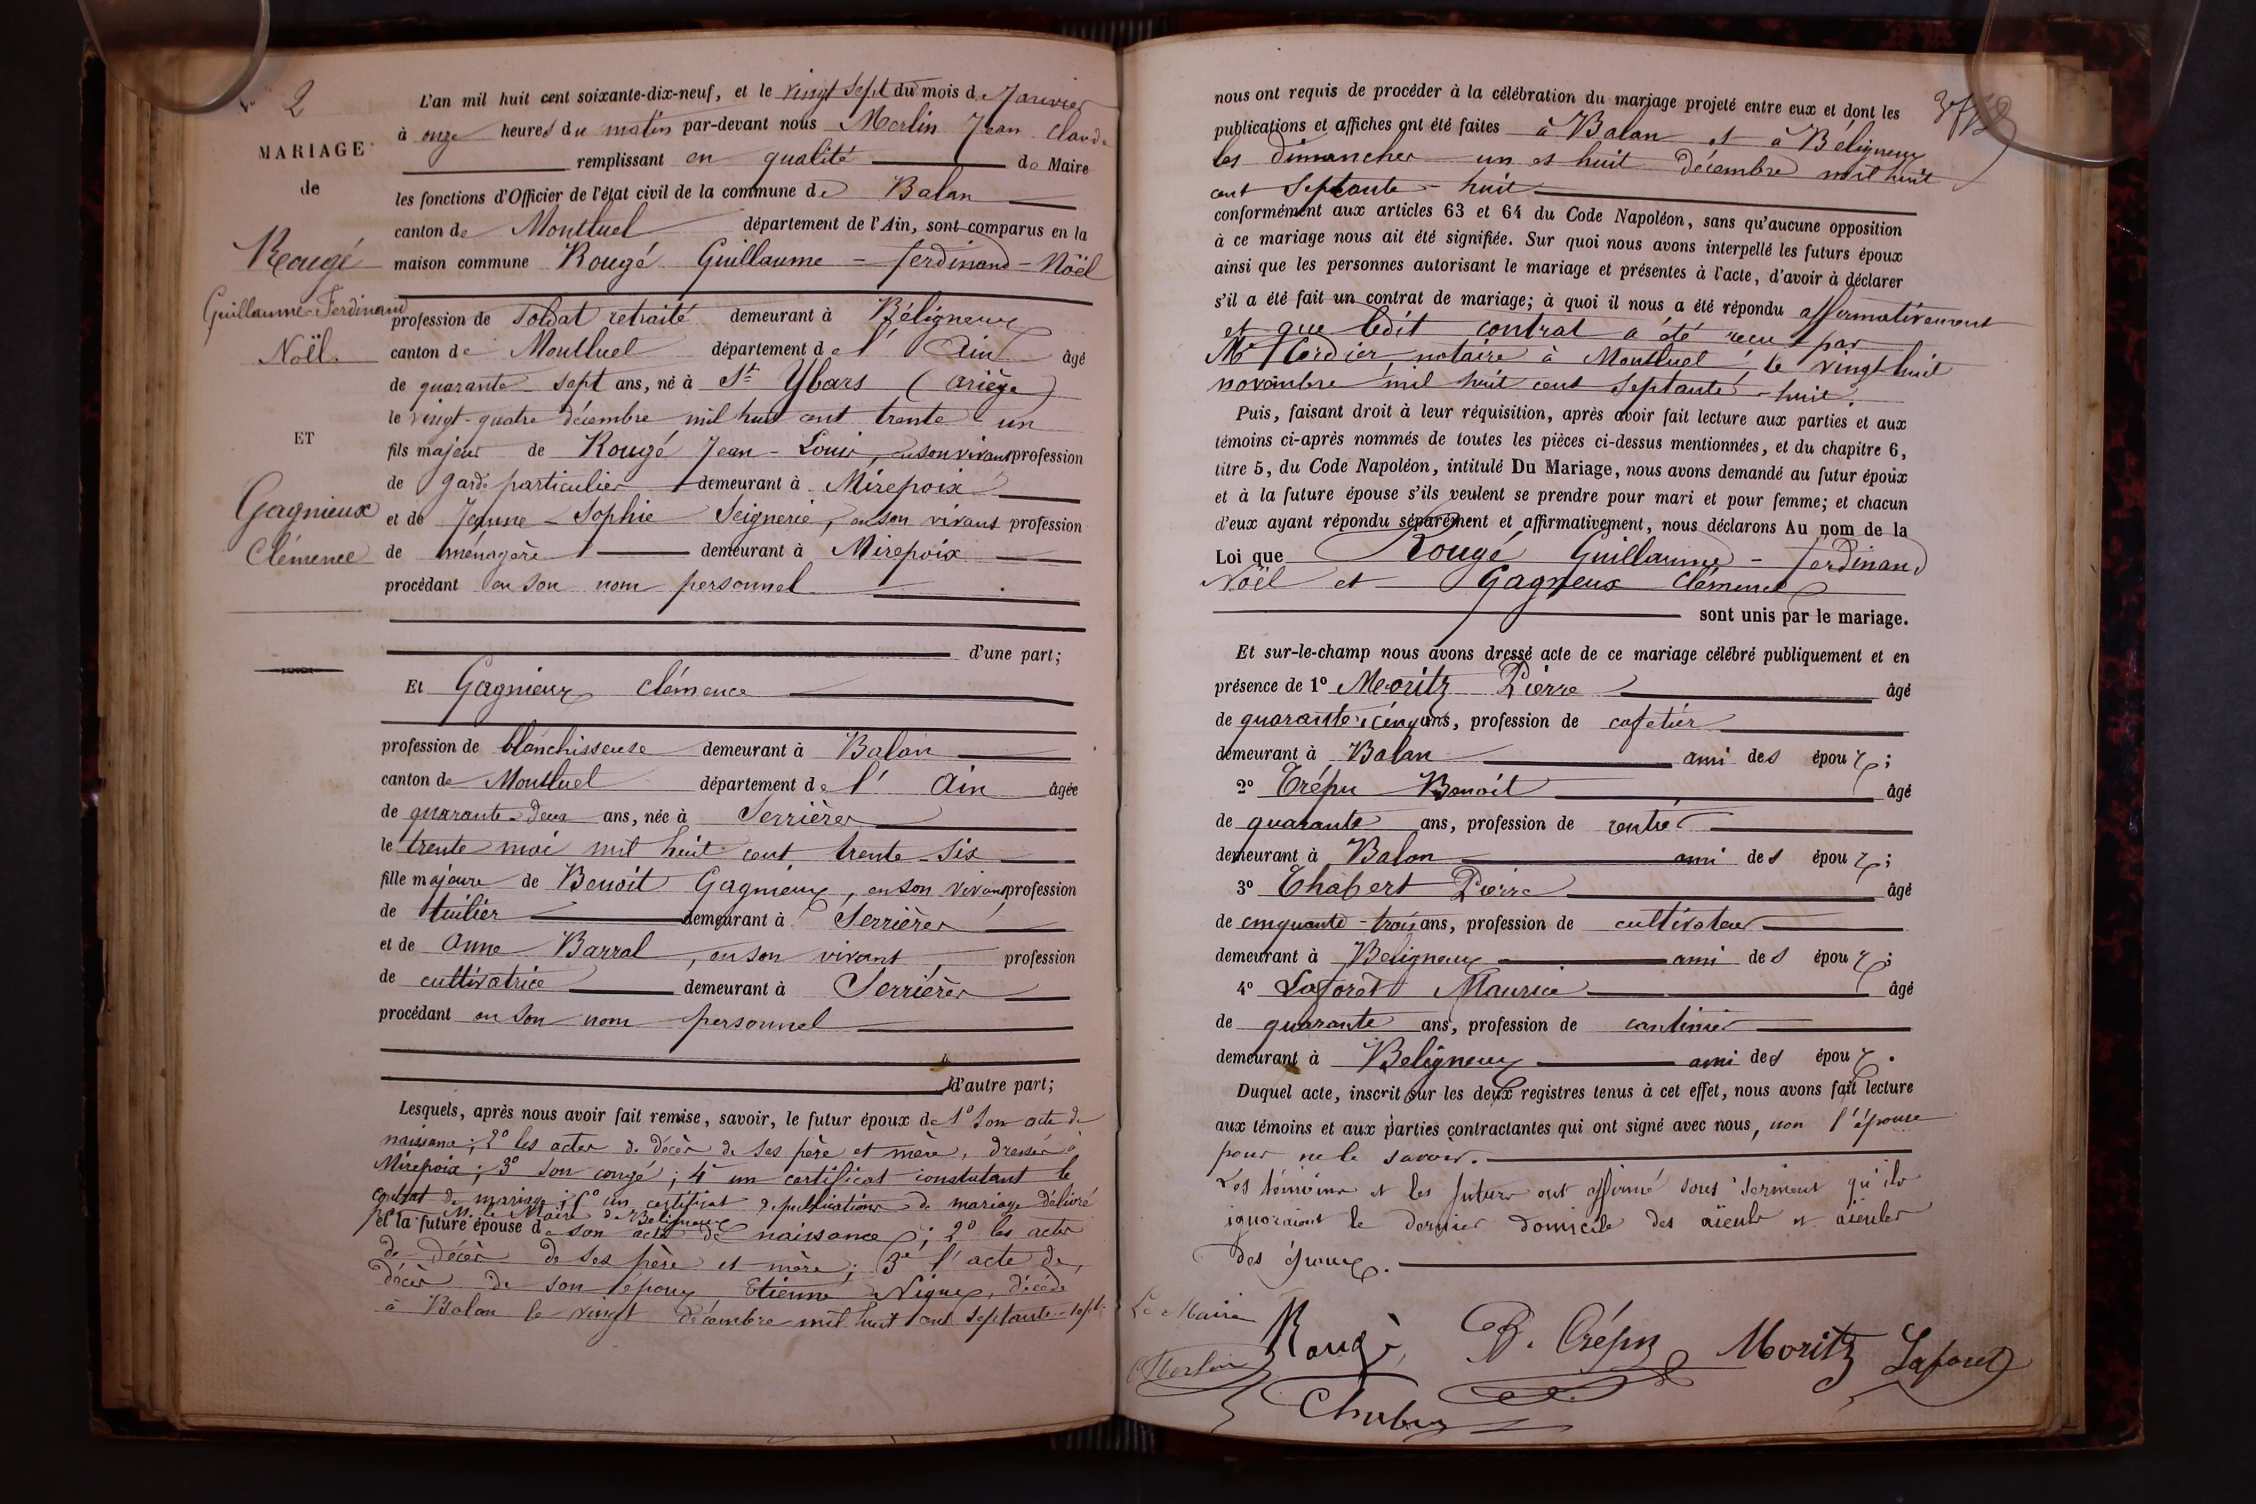 2
MARIAGE
de
Rougé
Guillaume-Ferdinand
Noël.
ET
Gagnieux
Clémence
L'an mil huit cent soixante-dix-neuf, et le vingt sept du mois de Janvier
à onze heures du matin par-devant nous Merlin Jean Claude
remplissant en qualité de Maire
les fonctions d'Officier de l'état civil de la commune de Balan
canton de Montluel département de l'Ain, sont comparus en la
maison commune Rougé Guillaume - ferdinand - Noël
profession de soldat retraité demeurant à Béligneux
canton de Montluel département de l' Ain âgé
de quarante sept ans, né à St Ybars (ariège)
le vingt-quatre décembre mil huit cent trente un
fils majeur de Rougé Jean - Louis, en son vivant profession
de garde particulier demeurant à Mirepoix
et de Jeanne - Sophie Seignerie, en son vivant profession
de ménagère demeurant à Mirepoix
procédant en son nom personnel
d'une part;
Et Gagnieux Clémence
profession de blanchisseuse demeurant à Balan
canton de Montluel département de l' Ain âgée
de quarante-deux ans, née à Serrières
le trente mai mil huit cent trente-six
fille majeure de Benoit Gagnieux, en son vivant profession
de tuilier demeurant à Serrières
et de Anne Barral, en son vivant, profession
de cultivatrice demeurant à Serrières
procédant en son nom personnel
d'autre part;
Lesquels, après nous avoir fait remise, savoir, le futur époux de 1º son acte de
naissance; 2º les actes de décès de ses père et mère, dressés à
Mirepoix; 3º son congé; 4º un certificat constatant le
contrat de mariage; 5º un certificat de publications de mariage délivré
par M. le Maire de Beligneux
et la future épouse de son acte de naissance; 2º les actes
de décès de ses père et mère; 3º l'acte de
décès de son époux Etienne Vignes, décédé
à Balan le vingt décembre mil huit cent septante-sept.
nous ont requis de procéder à la célébration du mariage projeté entre eux et dont les
publications et affiches ont été faites à Balan et à Béligneux
les dimanches un et huit décembre mil huit
cent septante-huit
conformément aux articles 63 et 64 du Code Napoléon, sans qu'aucune opposition
à ce mariage nous ait été signifiée. Sur quoi nous avons interpellé les futurs époux
ainsi que les personnes autorisant le mariage et présentes à l'acte, d'avoir à déclarer
s'il a été fait un contrat de mariage; à quoi il nous a été répondu affirmativement
et que ledit contrat a été reçu par
Me Cordier, notaire à Montluel, le vingt huit
novembre mil huit cent septante-huit.
Puis, faisant droit à leur réquisition, après avoir fait lecture aux parties et aux
témoins ci-après nommés de toutes les pièces ci-dessus mentionnées, et du chapitre 6,
titre 5, du Code Napoléon, intitulé Du Mariage, nous avons demandé au futur époux
et à la future épouse s'ils veulent se prendre pour mari et pour femme; et chacun
d'eux ayant répondu séparément et affirmativement, nous déclarons Au nom de la
Loi que Rougé Guillaume - ferdinand
Noël et Gagneux Clémence
sont unis par le mariage.
Et sur-le-champ nous avons dressé acte de ce mariage célébré publiquement et en
présence de 1º Moritz Pierre âgé
de quarante-cinq ans, profession de cafetier
demeurant à Balan ami des époux;
2º Crépu Benoit âgé
de quarante ans, profession de rentier
demeurant à Balan ami des époux;
3º Chabert Pierre âgé
de cinquante-trois ans, profession de cultivateur
demeurant à Beligneux ami des époux;
4º Laforêt Maurice âgé
de quarante ans, profession de cantinier
demeurant à Beligneux ami des époux.
Duquel acte, inscrit sur les deux registres tenus à cet effet, nous avons fait lecture
aux témoins et aux parties contractantes qui ont signé avec nous, non l'épouse
pour ne le savoir.
Les témoins et les futurs ont affirmé sous serment qu'ils
ignoraient le dernier domicile des aïeuls et aïeules
des époux.
Le Maire
Merlin Rougé B. Crépu Moritz Laforet
Chabert